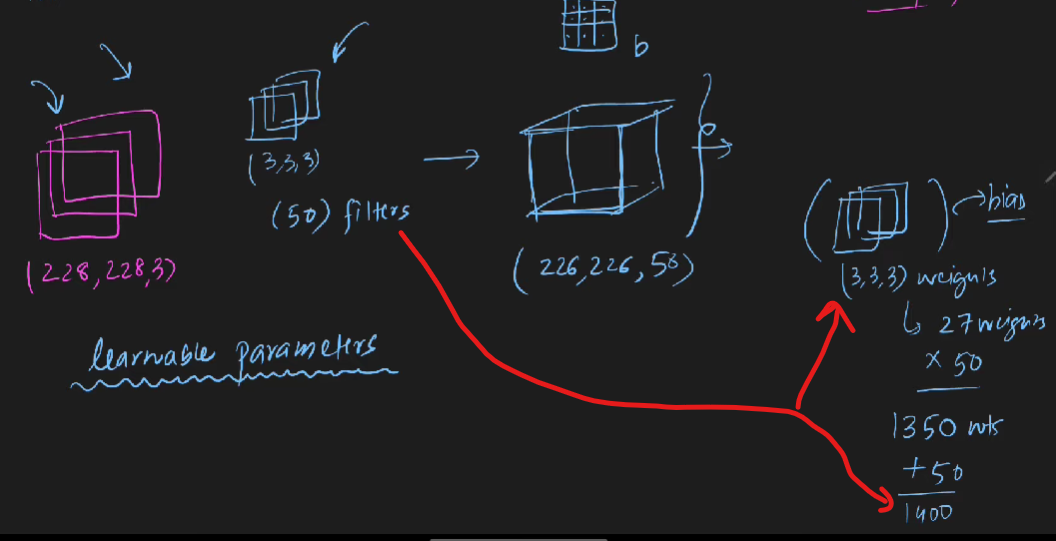 b
(3,3,3)
(50) filters
(228,228,3)
(226,226,50)
bias
(3,3,3) weights
27 weights
x 50
1350 wts
+50
1400
learnable parameters